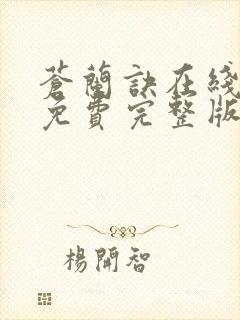 蒼蘭訣在綫
免費完整版
楊開智